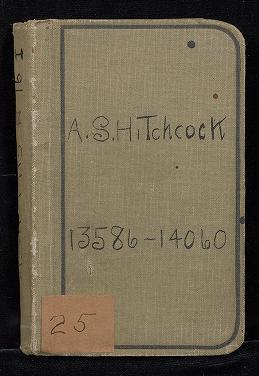 A.S. HiTchcock
13586-14060
25